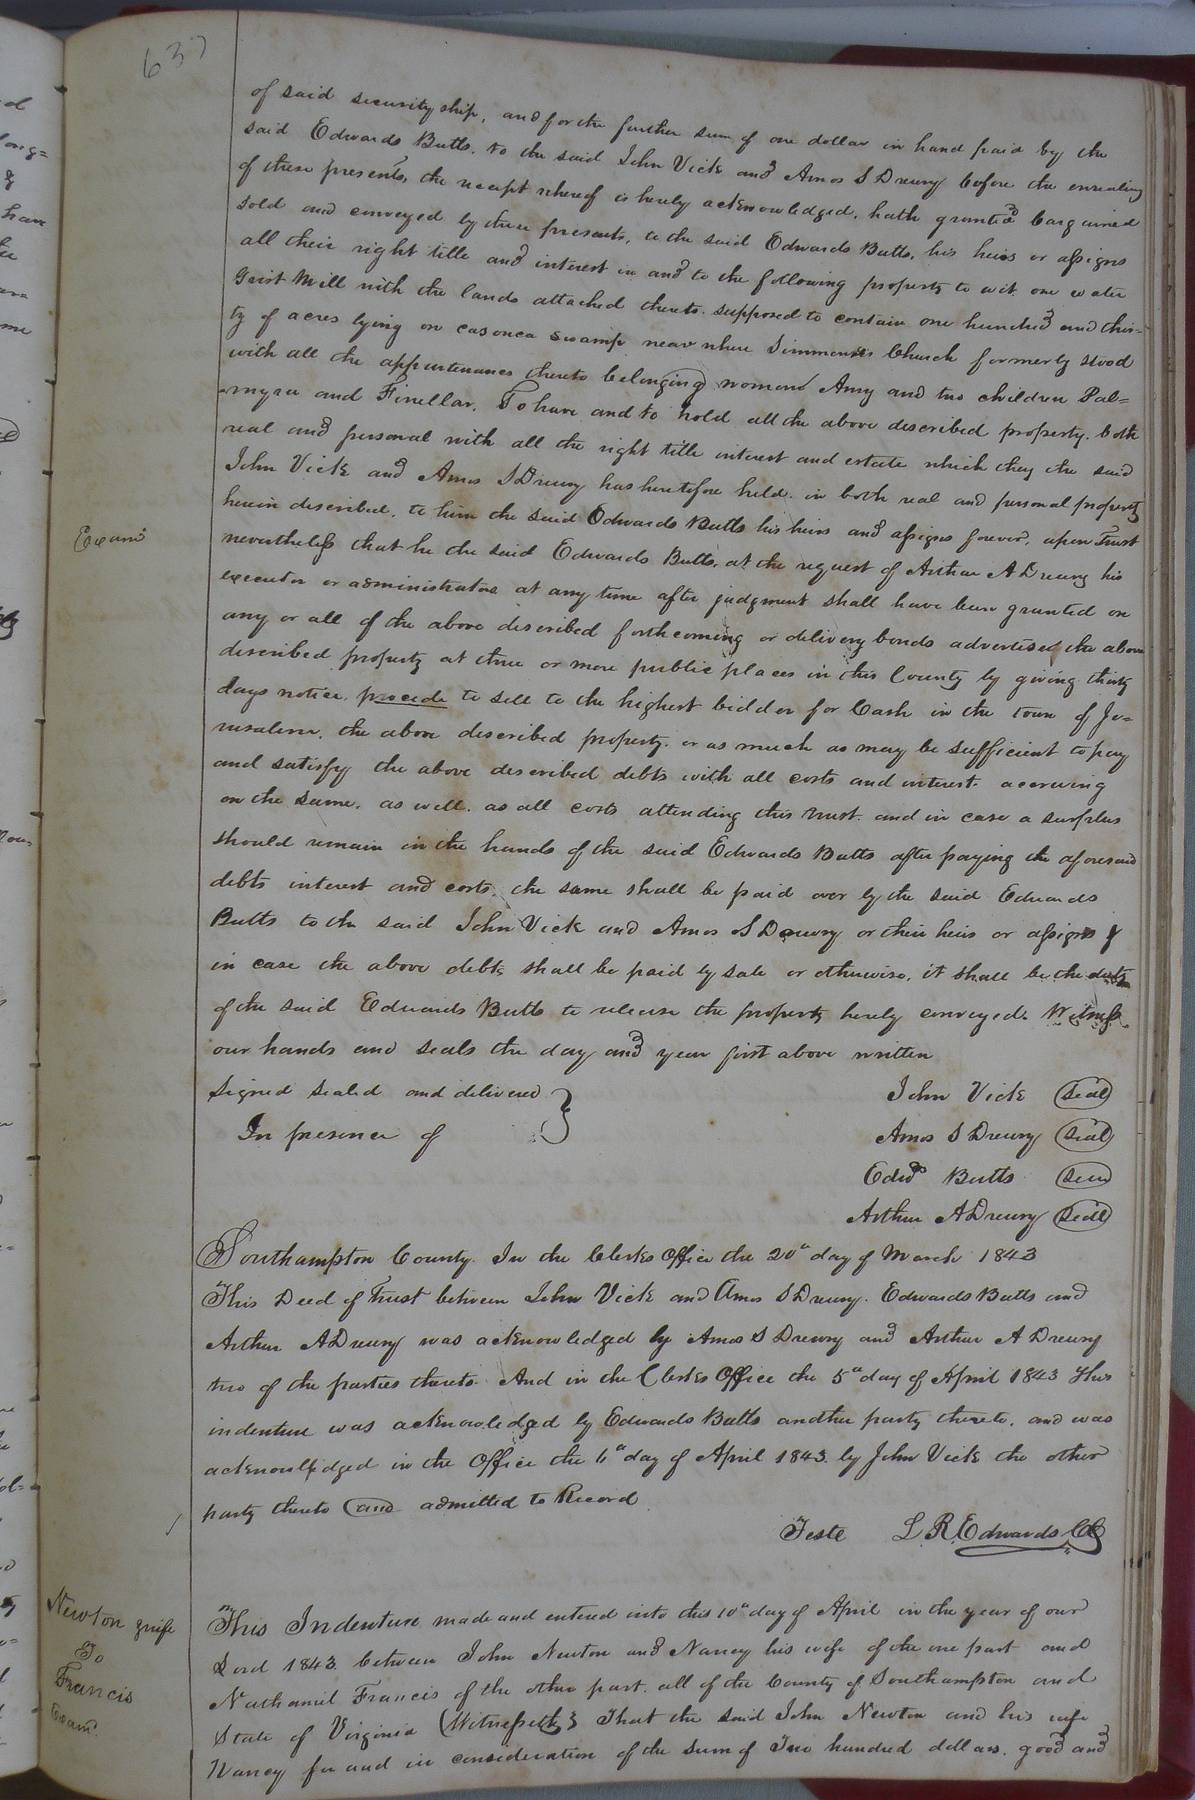 637
of said securityship, and for the further sum of one dollar in hand paid by the
said Edwards Butts. to the said John Vick and Amos S Drewry before the ensealing
of these presents, the receipt whereof is hereby acknowledged, hath granted bargained
sold and conveyed by these presents, to the said Edwards Butts, his heirs or assigns
all their right title and interest in and to the following property to wit one water
Grist Mill with the lands attached thereto. supposed to contain one hundred and thir=
ty of acres lying on swamp near where Simmons Church formerly stood
with all the appurtenances thereto belonging Amy and two children Pal=
myra and Finellar. To have and to hold all the above described property. both
real and personal with all the right title interest and estate which they the said
John Vick and Amos S Drewry has heretofore held. in both real and personal property
herein described. to him the said Edwards Butts his heirs and assigns forever, upon Trust
nevertheless that he the said Edwards Butts, at the request of Arthur A Drewry his
executor or administrators at any time after judgment shall have been granted on
any or all of the above described forthcoming or delivery bonds advertised the above
described property at three or more public places in this County by giving thirty
days notice. procede to sell to the highest bidder for Cash in the town of Je=
rusalem. the above described property. or as much as may be sufficient to pay
and satisfy the above described debts with all costs and interest. accruing
on the same. as well. as all costs attending this trust. and in case a surplus
should remain in the hands of the said Edwards Butts after paying the aforesaid
debts interest and costs. the same shall be paid over by the said Edwards
Butts to the said John Vick and Amos S Drewry or their heirs or assigns &
in case the above debts shall be paid by sale or otherwise, it shall be the duty
of the said Edwards Butts to release the property hereby conveyed. Witness
our hands and seals the day and year first above written
Signed sealed and delivered }
In presence of
John Vick (Seal)
Amos S Drewry (Seal)
Edwds Butts (Seal)
Arthur A Drewry (Seal)
Exam'd
Southampton County. In the Clerks Office the 20" day of March 1843
This Deed of Trust between John Vick and Amos S Drewry. Edwards Butts and
Arthur A Drewry was acknowledged by Amos S Drewry and Arthur A Drewry
two of the parties thereto. And in the Clerks Office the 5" day of April 1843 This
indenture was acknowledged by Edwards Butts another party thereto, and was
acknowledged in the Office the 6" day of April 1843 by John Vick the other
party thereto and admitted to Record
Teste L R Edwards CC
Newton & wife
To
Francis
Exam'd
This Indenture made and entered into this 10" day of April in the year of our
Lord 1843 between John Newton and Nancy his wife of the one part and
Nathaniel Francis of the other part. all of the County of Southampton and
State of Virginia (Witnesseth) That the said John Newton and his wife
Nancy for and in consideration of the sum of Two hundred dollars. good and